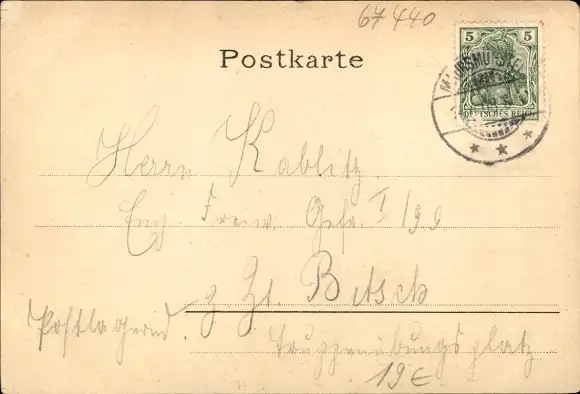 67440
Postkarte
5 5
DEUTSCHES REICH
MAURSMÜNSTER
Herrn Kablitz
Einj. Freiw. Gefr. I/99
z. Zt. Bitsch
Postlagernd.
Truppenübungsplatz
19€